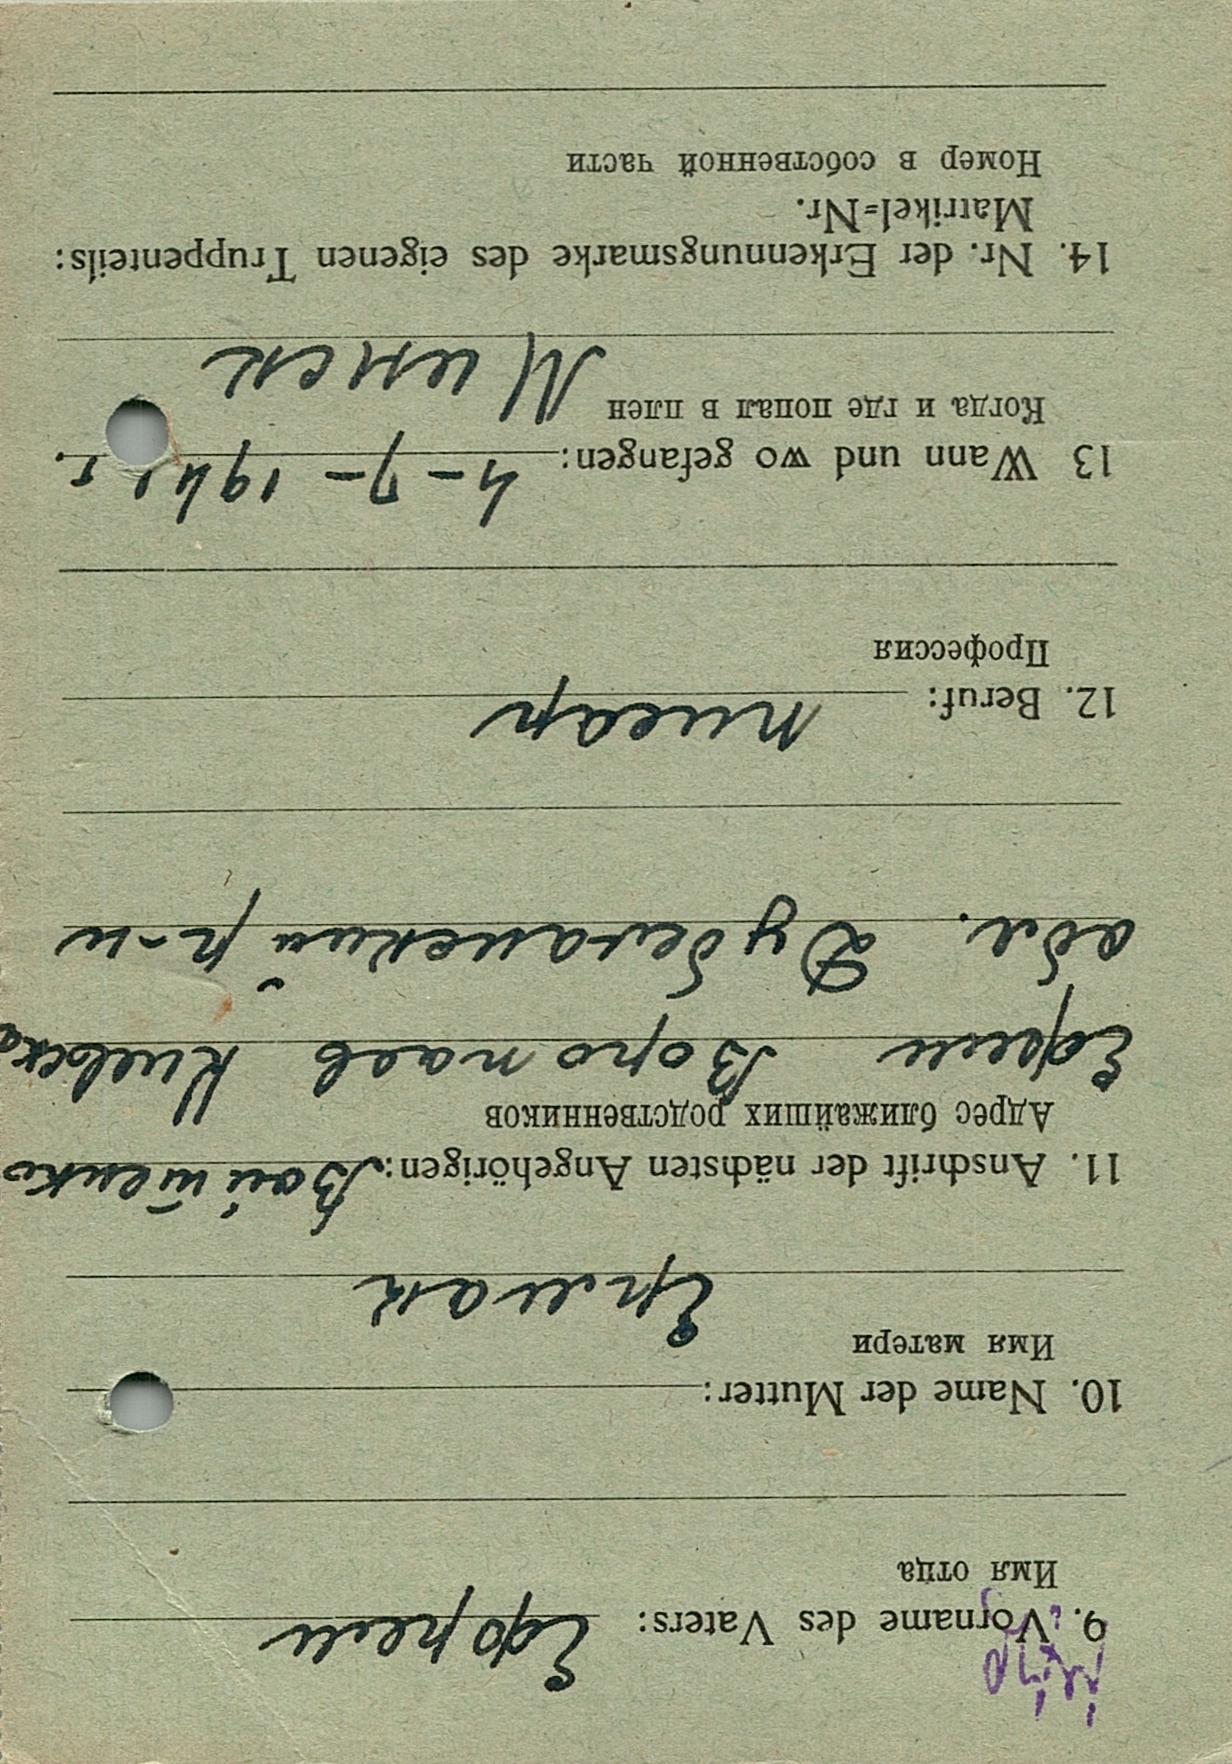 9. Vorname des Vaters: Ефрем
Имя отца
10. Name der Mutter:
Имя матери
Ермак
11. Anschrift der nächsten Angehörigen: Войтенко
Адрес ближайших родственников
Ефрем Воропаев Киевско
обл. р-н
12. Beruf: писар
Профессия
13 Wann und wo gefangen: 4-7-1941 г.
Когда и где попал в плен Минск
14. Nr. der Erkennungsmarke des eigenen Truppenteils:
Matrikel=Nr.
Номер в собственной части